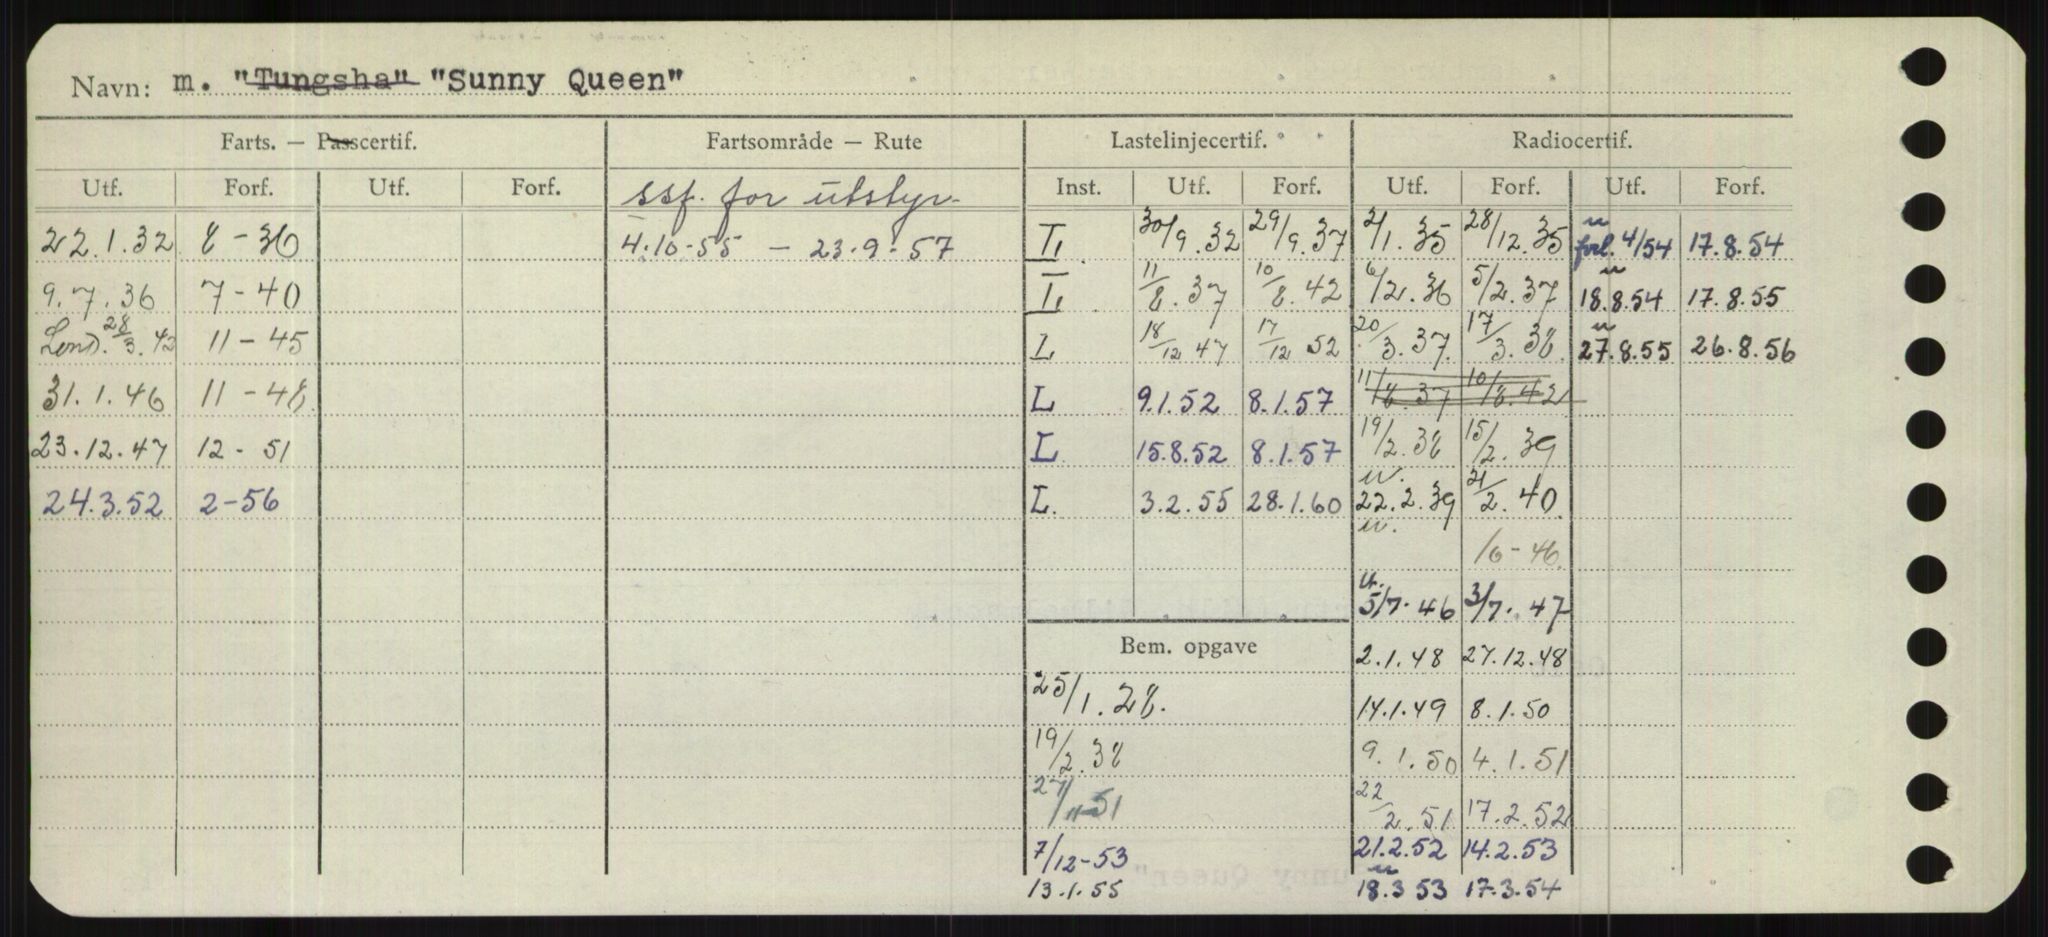 Navn: m. "Tungsha" "Sunny Queen"
Farts. — Passcertif. Fartsområde — Rute Lastelinjecertif. Radiocertif.
Utf. Forf. Utf. Forf. ssf. for utstyr. Inst. Utf. Forf. Utf. Forf. Utf. Forf.
22.1.32 8-36 4.10-55 — 23.9-57 I. 30/9.32 29/9.37 2/1.35 28/12.35 forl. 4/54 17.8.54
9.7.36 7-40 I. 11/8.37 10/8.42 6/2.36 5/2.37 18.8.54 17.8.55
Lond. 28/3.42 11-45 L 18/12 47 17/12 52 20/3.37. 17/3.38. 27.8.55 26.8.56
31.1.46 11-48. L 9.1.52 8.1.57 11/8.37 10/8.42
23.12.47 12-51 L 15.8.52 8.1.57 19/2.38 15/2.39
24.3.52 2-56 L. 3.2.55 28.1.60 22.2.39 21/2.40
/6-46.
5/7.46 3/7.47
Bem. opgave 2.1.48 27.12.48
25/1.28. 14.1.49 8.1.50
19/2.38 9.1.50 4.1.51
27/11-51 22/2.51 17.2.52
7/12-53 21.2.52 14.2.53
13.1.55 18.3 53 17.3.54